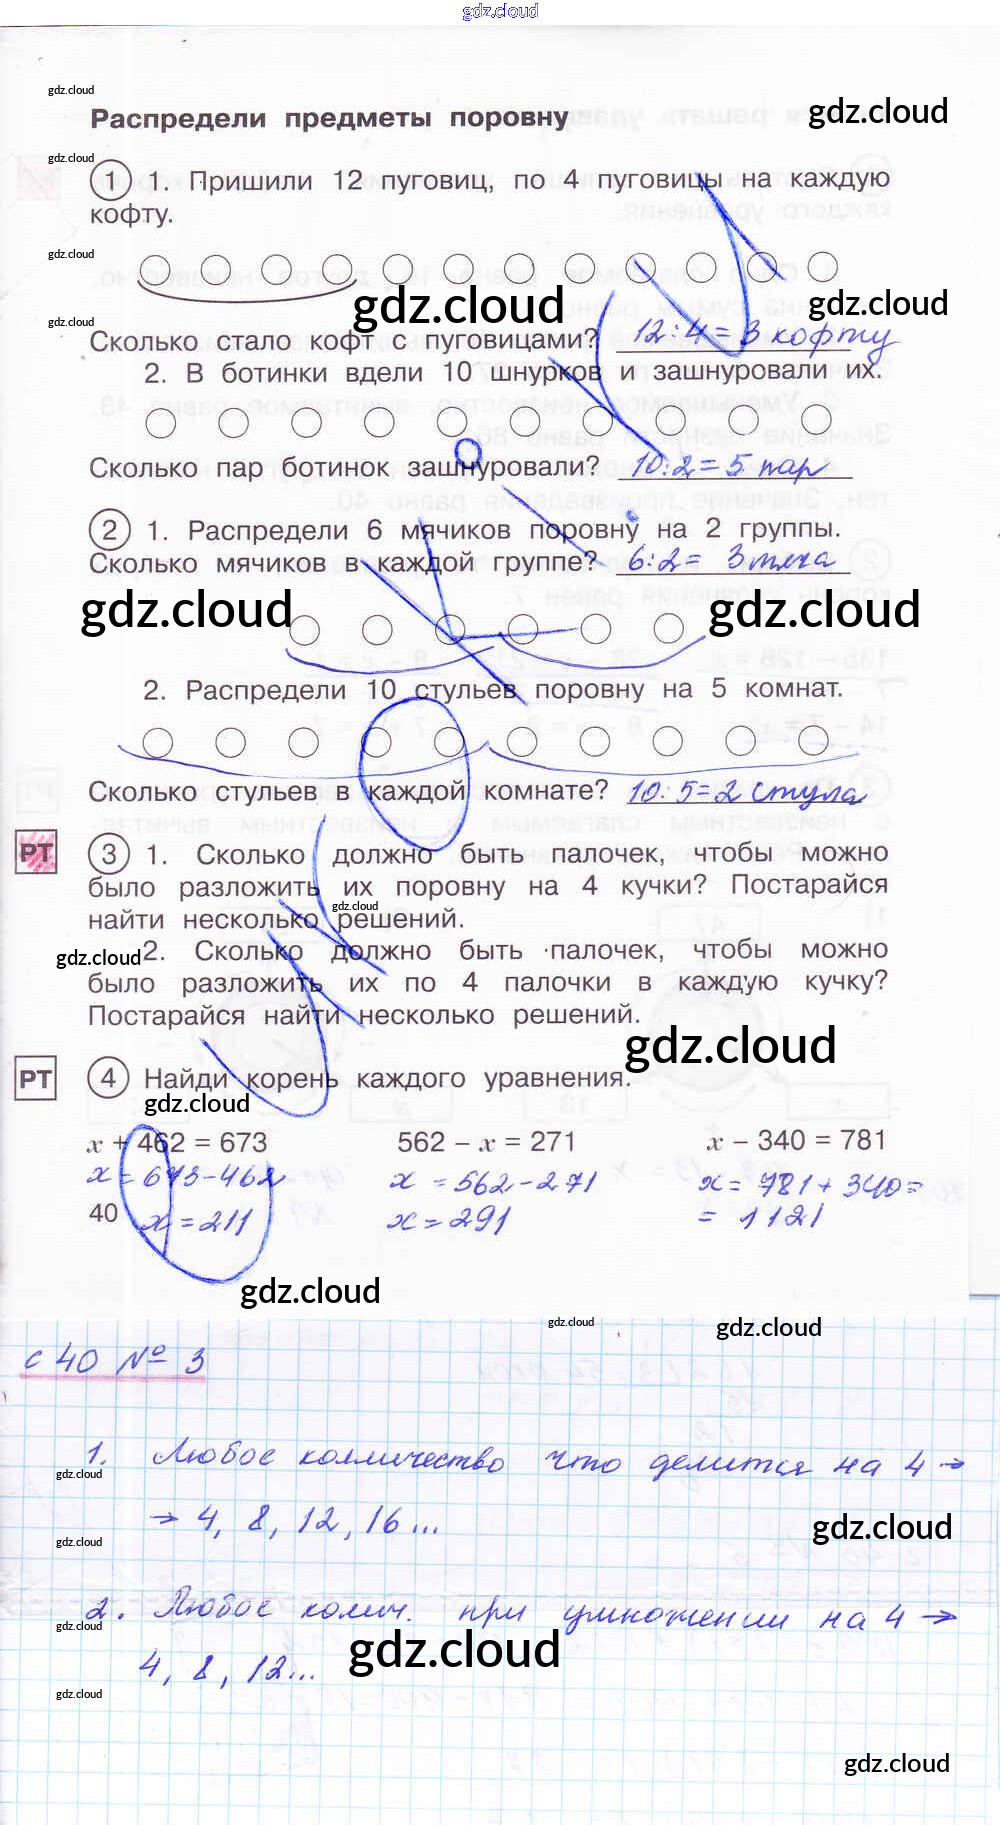 gdz.cloud
gdz.cloud
gdz.cloud
Распредели предметы поровну
gdz.cloud
1 1. Пришили 12 пуговиц, по 4 пуговицы на каждую
кофту.
gdz.cloud
gdz.cloud
gdz.cloud
gdz.cloud
Сколько стало кофт с пуговицами? 12:4=3 кофту
2. В ботинки вдели 10 шнурков и зашнуровали их.
Сколько пар ботинок зашнуровали? 10:2=5 пар
2 1. Распредели 6 мячиков поровну на 2 группы.
Сколько мячиков в каждой группе? 6:2= 3 мяча
gdz.cloud gdz.cloud
2. Распредели 10 стульев поровну на 5 комнат.
Сколько стульев в каждой комнате? 10:5=2 стула
РТ 3 1. Сколько должно быть палочек, чтобы можно
было разложить их поровну на 4 кучки? Постарайся
gdz.cloud
найти несколько решений.
gdz.cloud
2. Сколько должно быть палочек, чтобы можно
было разложить их по 4 палочки в каждую кучку?
Постарайся найти несколько решений.
gdz.cloud
РТ 4 Найди корень каждого уравнения.
gdz.cloud
x + 462 = 673 562 – x = 271 x – 340 = 781
x = 673-462 x = 562-271 x = 781+340=
40 x = 211 x = 291 = 1121
gdz.cloud
gdz.cloud
gdz.cloud
с 40 № 3
1. Любое колличество что делится на 4 →
gdz.cloud
→ 4, 8, 12, 16...
gdz.cloud
gdz.cloud
2. Любое колич. при умножении на 4 →
gdz.cloud
gdz.cloud
4, 8, 12...
gdz.cloud
gdz.cloud